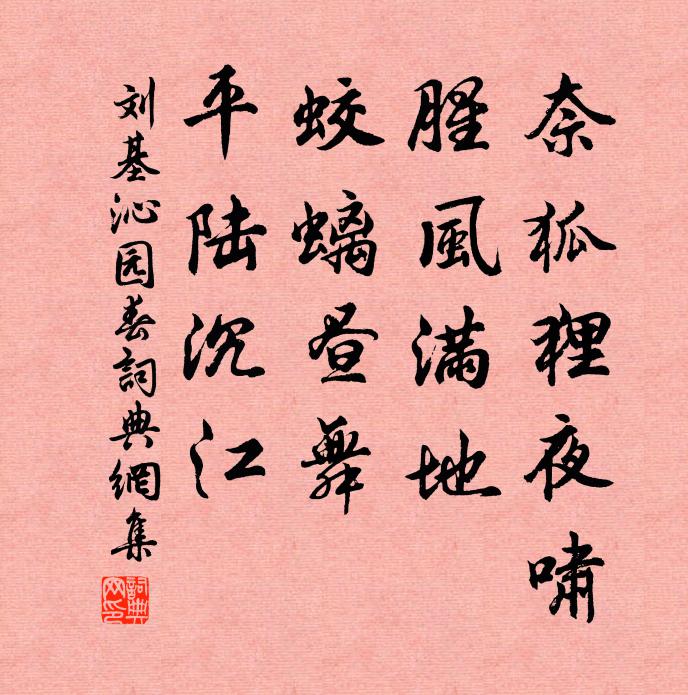 奈狐狸夜啸
腥風满地
蛟螭昼舞
平陆沉江
刘基沁园春詞典網集
詞典网印